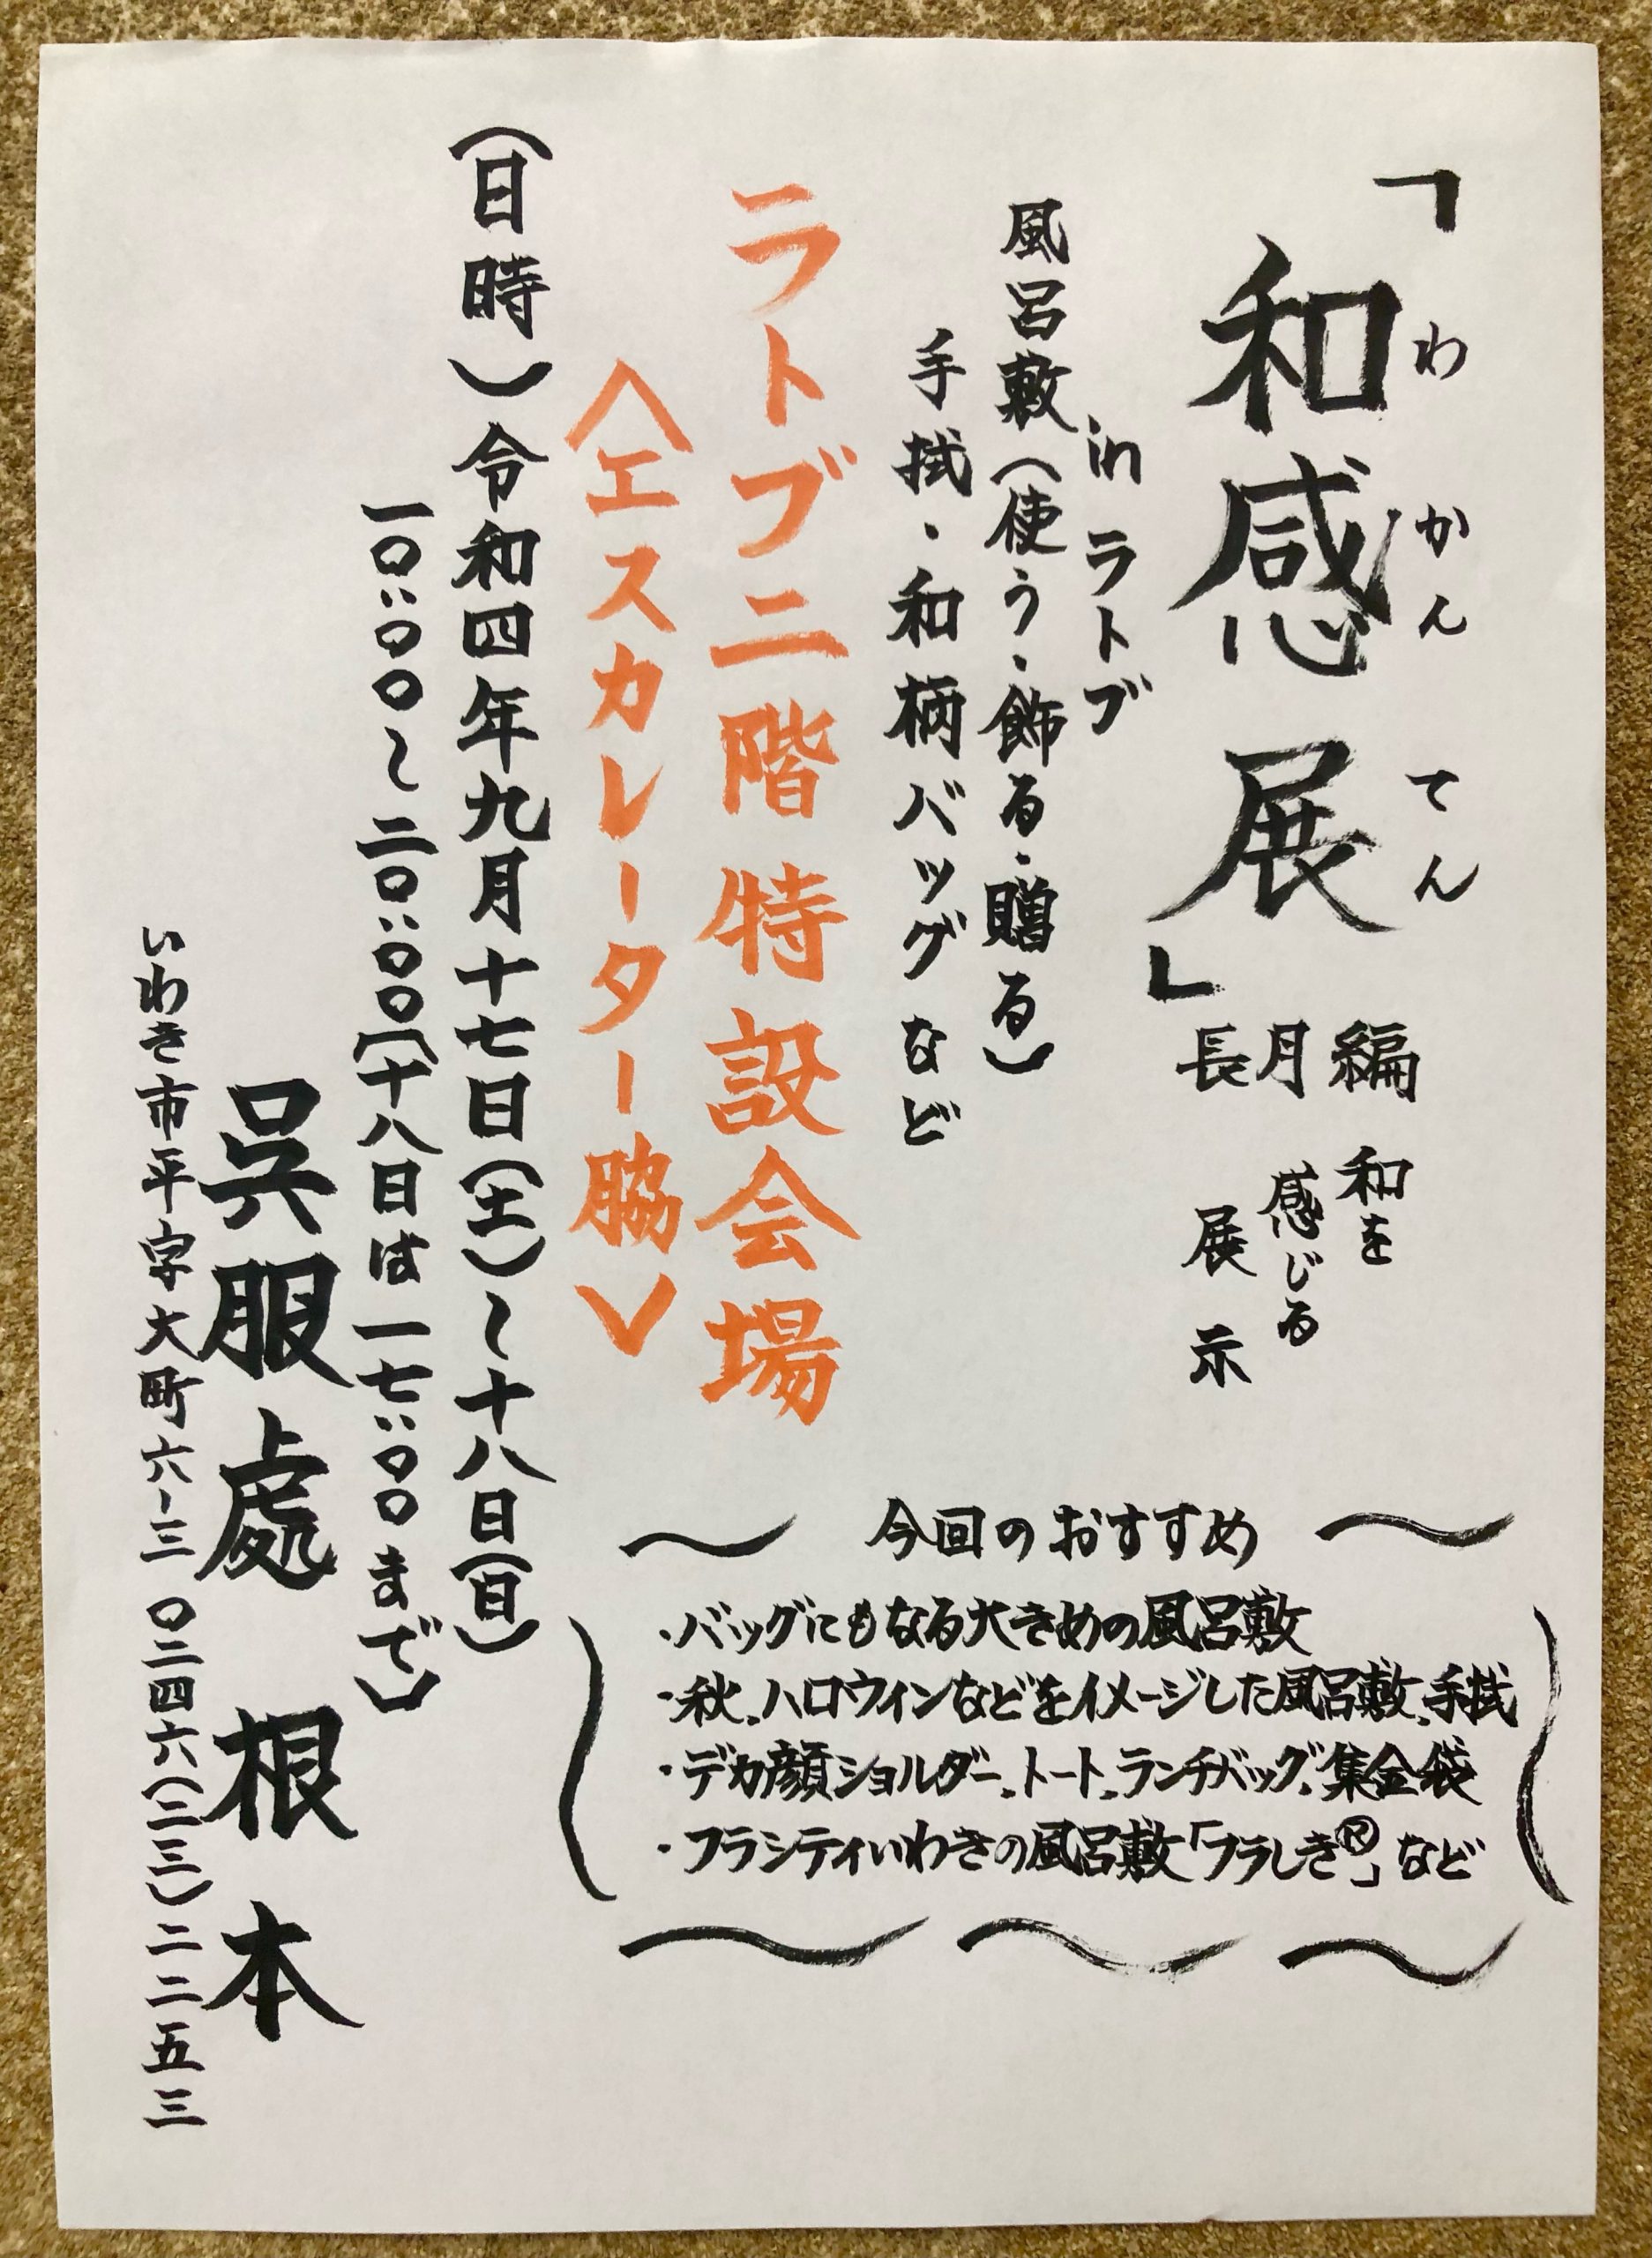 「和感展」
わかんてん
長月編
和を
感じる
展示
in ラトブ
風呂敷(使う・飾る・贈る)
手拭・和柄バッグなど
ラトブ二階特設会場
〈エスカレーター脇〉
(日時)令和四年九月十七日(土)~十八日(日)
一〇:〇〇~二〇:〇〇〔十八日は一七:〇〇まで〕
呉服處 根本
いわき市平字大町六-三 〇二四六(二三)二二五三
~ 今回のおすすめ ~
・バッグにもなる大きめの風呂敷
・秋、ハロウィンなどをイメージした風呂敷、手拭
・デカ顔ショルダー、トート、ランチバッグ、集金袋
・フラシティいわきの風呂敷「フラしき®」など